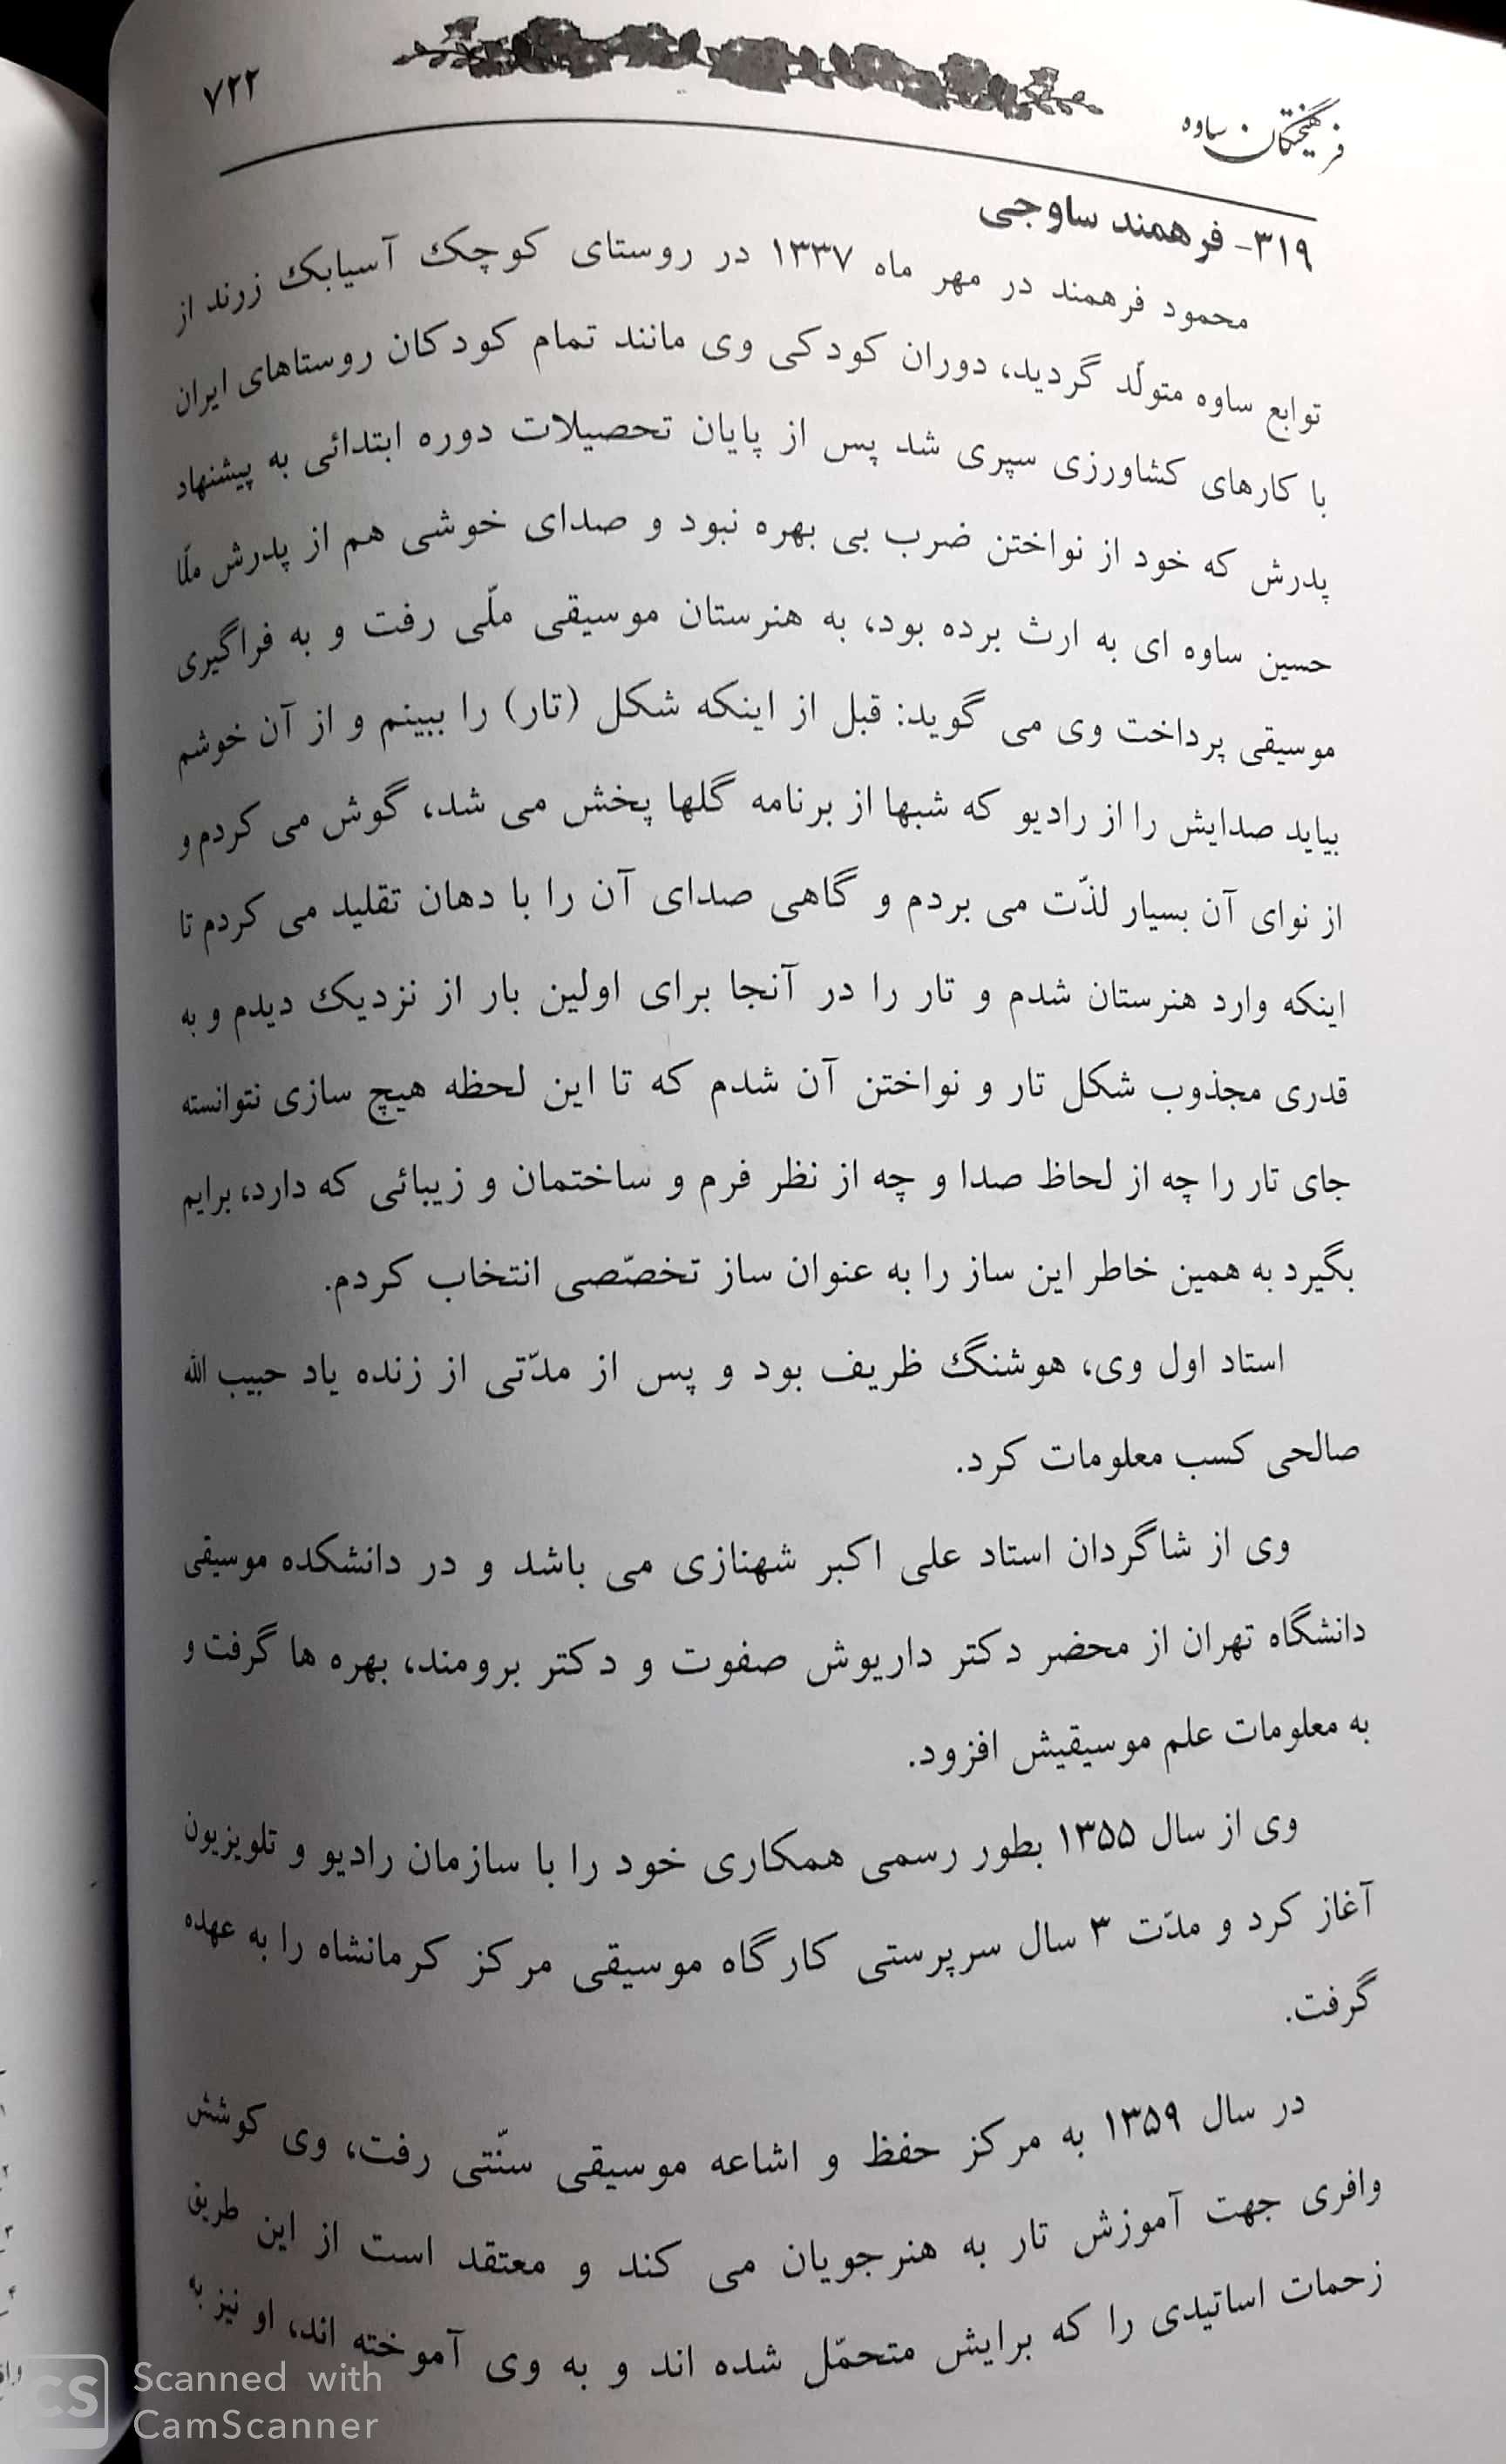 ۷۲۲
فرهیختگان ساوه
۳۱۹- فرهمند ساوجی
محمود فرهمند در مهر ماه ۱۳۳۷ در روستای کوچک آسیابک زرند از
توابع ساوه متولّد گردید، دوران کودکی وی مانند تمام کودکان روستاهای ایران
با کارهای کشاورزی سپری شد پس از پایان تحصیلات دوره ابتدائی به پیشنهاد
پدرش که خود از نواختن ضرب بی بهره نبود و صدای خوشی هم از پدرش ملّا
حسین ساوه ای به ارث برده بود، به هنرستان موسیقی ملّی رفت و به فراگیری
موسیقی پرداخت وی می گوید: قبل از اینکه شکل (تار) را ببینم و از آن خوشم
بیاید صدایش را از رادیو که شبها از برنامه گلها پخش می شد، گوش می کردم و
از نوای آن بسیار لذّت می بردم و گاهی صدای آن را با دهان تقلید می کردم تا
اینکه وارد هنرستان شدم و تار را در آنجا برای اولین بار از نزدیک دیدم و به
قدری مجذوب شکل تار و نواختن آن شدم که تا این لحظه هیچ سازی نتوانسته
جای تار را چه از لحاظ صدا و چه از نظر فرم و ساختمان و زیبائی که دارد، برایم
بگیرد به همین خاطر این ساز را به عنوان ساز تخصّصی انتخاب کردم.
استاد اول وی، هوشنگ ظریف بود و پس از مدّتی از زنده یاد حبیب الله
صالحی کسب معلومات کرد.
وی از شاگردان استاد علی اکبر شهنازی می باشد و در دانشکده موسیقی
دانشگاه تهران از محضر دکتر داریوش صفوت و دکتر برومند، بهره ها گرفت و
به معلومات علم موسیقیش افزود.
وی از سال ۱۳۵۵ بطور رسمی همکاری خود را با سازمان رادیو و تلویزیون
آغاز کرد و مدّت ۳ سال سرپرستی کارگاه موسیقی مرکز کرمانشاه را به عهده
گرفت.
در سال ۱۳۵۹ به مرکز حفظ و اشاعه موسیقی سنّتی رفت، وی کوشش
وافری جهت آموزش تار به هنرجویان می کند و معتقد است از این طریق
زحمات اساتیدی را که برایش متحمّل شده اند و به وی آموخته اند، او نیز به
CS
Scanned with
CamScanner